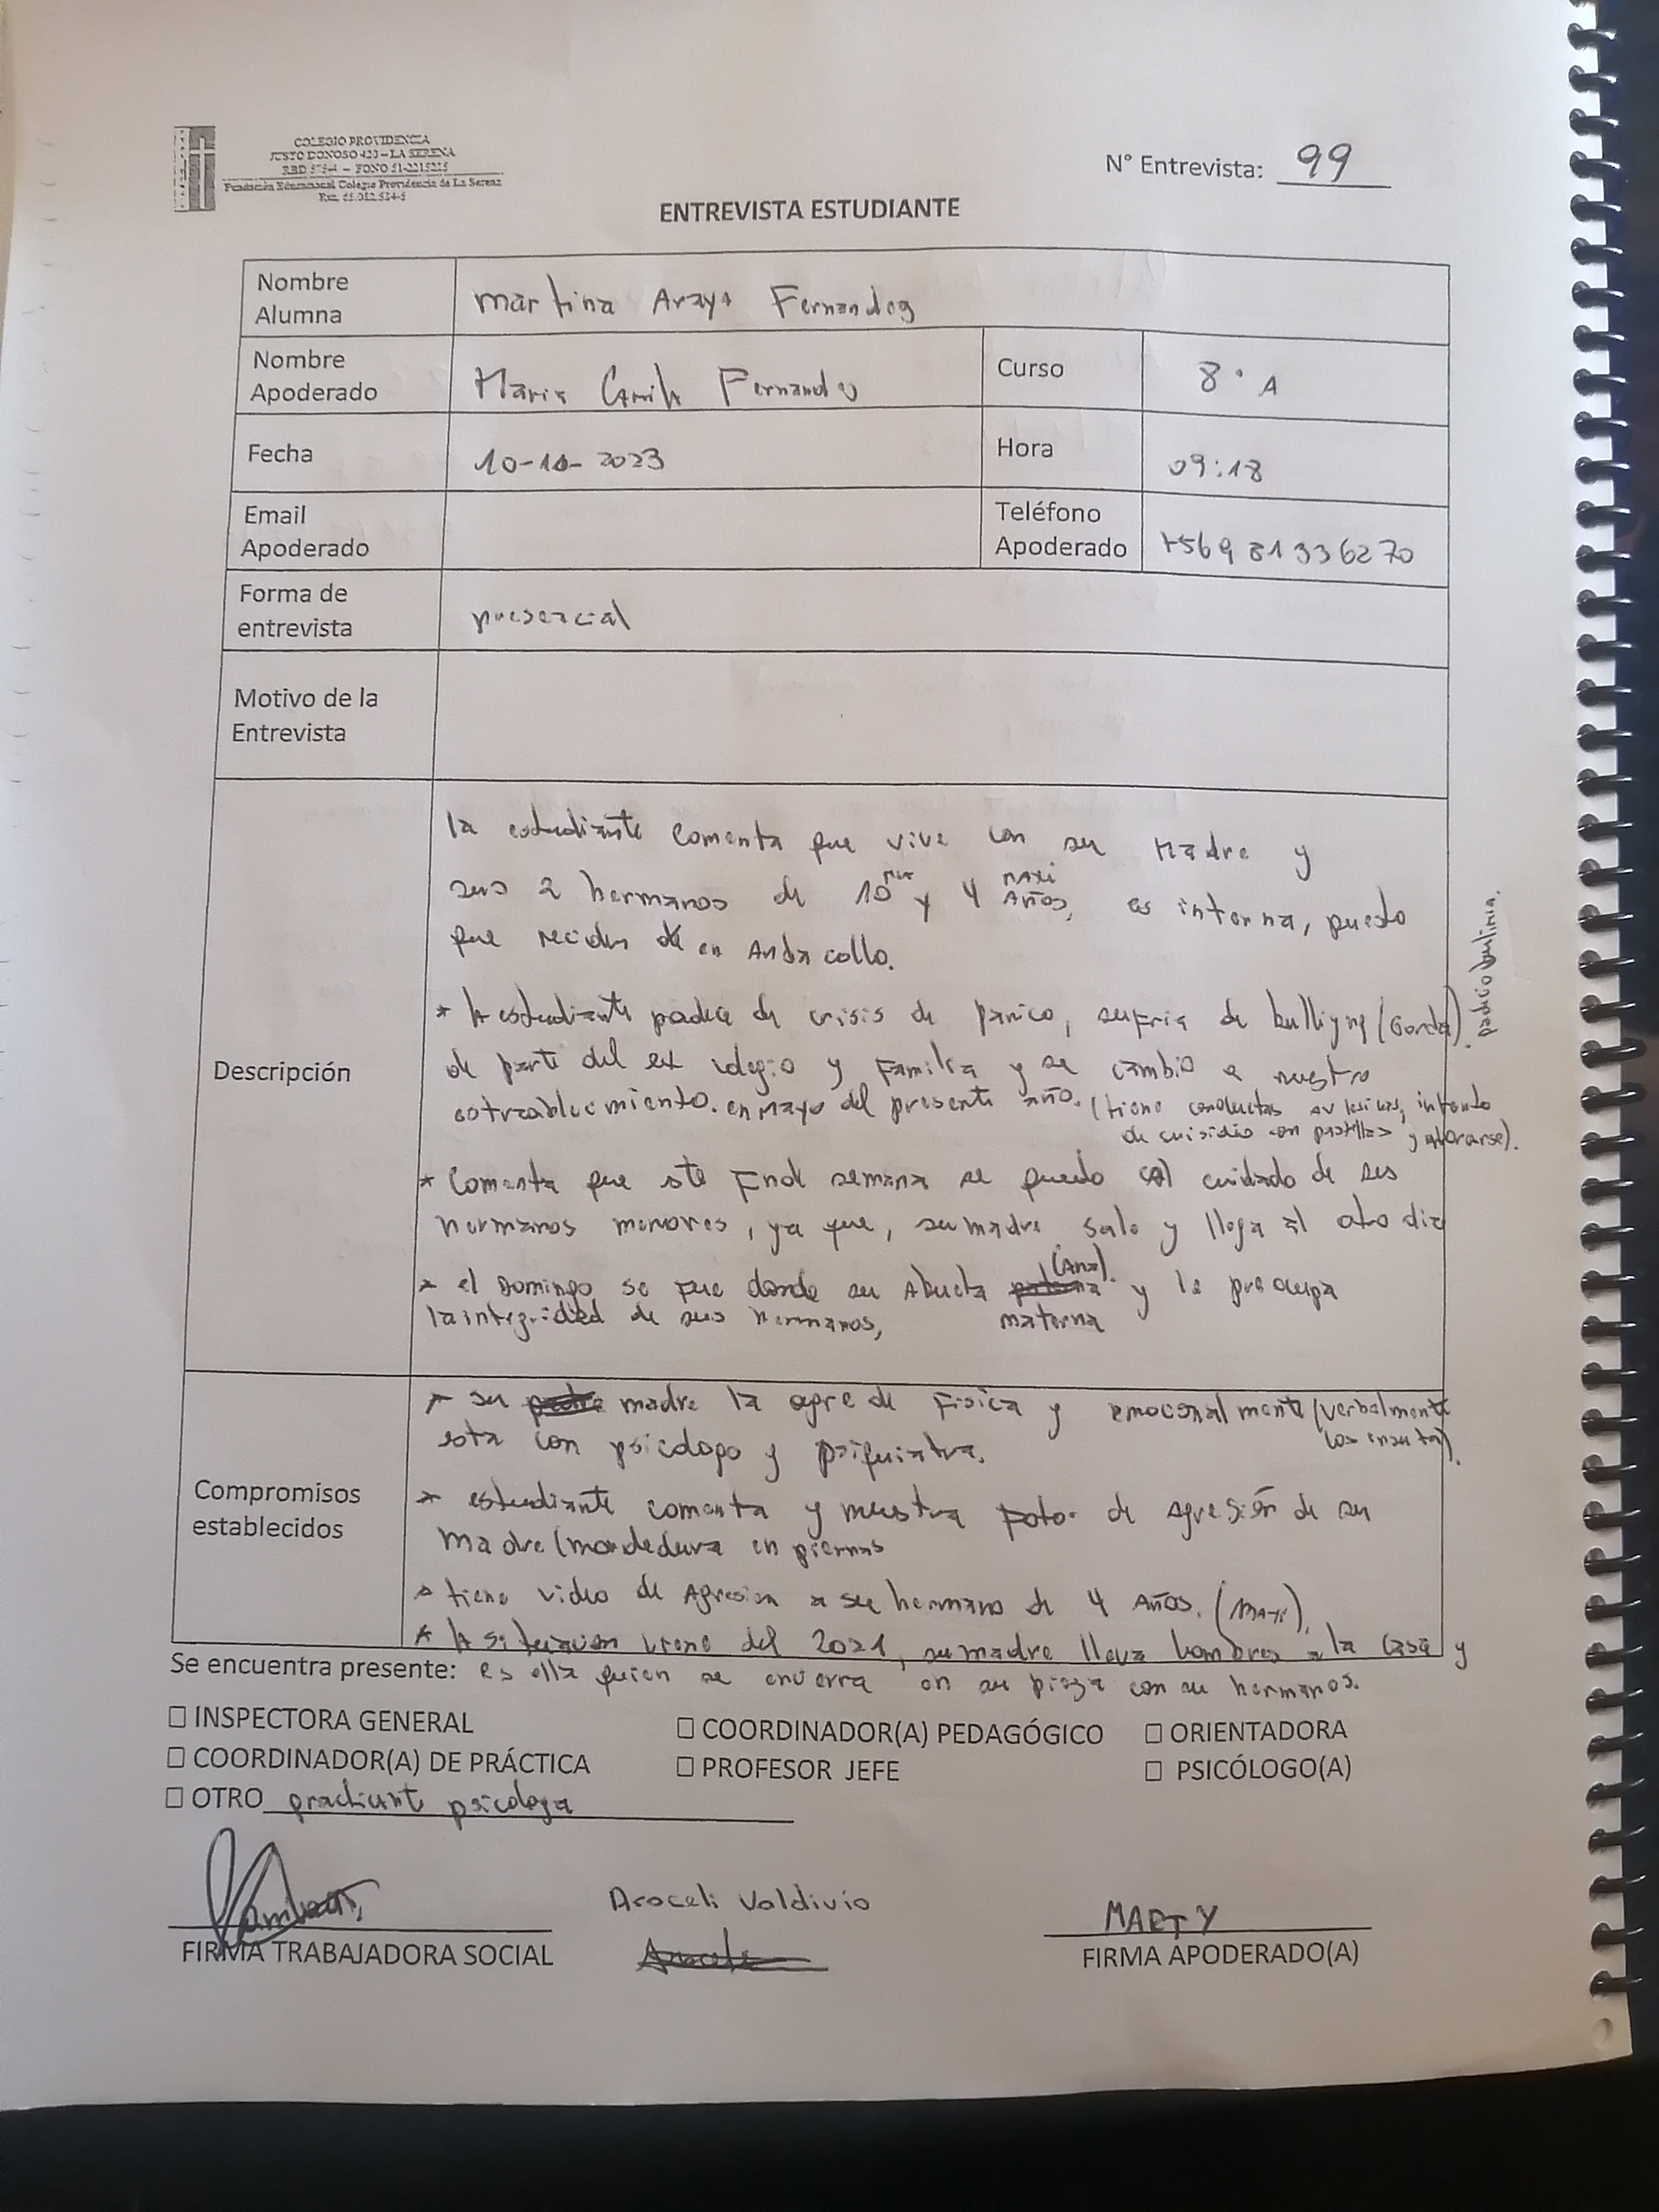 COLEGIO PROVIDENCIA
JUSTO DONOSO 420 – LA SERENA
Fundación Educacional Colegio Providencia de La Serena
N° Entrevista: 99
ENTREVISTA ESTUDIANTE
Nombre Alumna
Martina Araya Fernandez
Nombre Apoderado
Maria Camila Fernandez
Curso
8° A
Fecha
10-10-2023
Hora
09:18
Email Apoderado
Teléfono Apoderado
+569 81336270
Forma de entrevista
presencial
Motivo de la Entrevista
Descripción
la estudiante comenta que vive con su Madre y
sus 2 hermanos de 10 y 4 Años, es interna, puesto
MAXI
que reciden en Andacollo.
* la estudiante padece de crisis de panico, sufria de bulliyng (Gorda).
padecio bulimia.
de parte del ex colegio y Familia y se cambio a nuestro
establecimiento. en Mayo del presente año. (tiene conductas intento
de cuisidio con pastillas y ahorarse).
* Comenta que este Fin de semana se quedo al cuidado de sus
hermanos menores, ya que, su madre sale y llega al otro dia
* el Domingo se fue donde su Abuela (Ana). y le preocupa
la integridad de sus hermanos, materna
Compromisos establecidos
* su madre la agrede Fisica y emocionalmente (verbalmente
los insulta).
esta con psicologo y psiquiatra.
* estudiante comenta y muestra Foto de agresión de su
Madre (mordedura en piernas
* tiene video de Agresion a su hermano de 4 Años. (MAXI).
* la situación viene del 2021, su madre lleva hombres a la casa y
Se encuentra presente: es ella quien se encierra en su pieza con su hermanos.
☐ INSPECTORA GENERAL ☐ COORDINADOR(A) PEDAGÓGICO ☐ ORIENTADORA
☐ COORDINADOR(A) DE PRÁCTICA ☐ PROFESOR JEFE ☐ PSICÓLOGO(A)
☐ OTRO practicante psicologa
Araceli Valdivia
MARTY
FIRMA TRABAJADORA SOCIAL
FIRMA APODERADO(A)